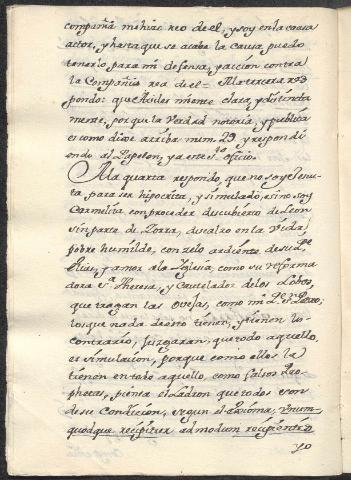 compañia me hizo reo de el, y soy en la causa
actor, y hasta que se acabe la causa, puedo
tenerlo para mi defensa, y accion contra
la Compañia rea de el = Ala tercera res
pondo: que Aviles miente clara, y distincta
mente, porque la Verdad notoria, y publica
es como dixe arriba num. 29 y respondi
endo al Papelon, ya este su oficio.
Ala quarta respondo, que no soy Jesui
ta para ser hipocrita, y simulado, sino soy
Carmelita con proceder descubierto de Leon
sin parte de Zorra, descalzo en la vida,
pobre humilde, con zelo ardiente de su Pe.
Elias, y amor a la Yglesia, como su reforma
dora Sta. Theresa, y Cautelador de los Lobos,
que tragan las Ovejas, como mi Pe. Sn. Pedro:
los que nada de esto tienen, y tienen lo
contrario, juzgaran, que todo aquello,
es simulacion, porque como ellos la
tienen en todo aquello, como falsos Pro-
phetas, piensa el Ladron que todos son
de su Condicion, segun el Axioma, Unum-
quodque recipitur ad modum recipientis
yo